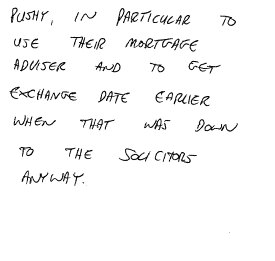 PUSHY, IN PARTICULAR TO
USE THEIR MORTGAGE
ADVISER AND TO GET
EXCHANGE DATE EARLIER
WHEN THAT WAS DOWN
TO THE SOLICITORS
ANYWAY.